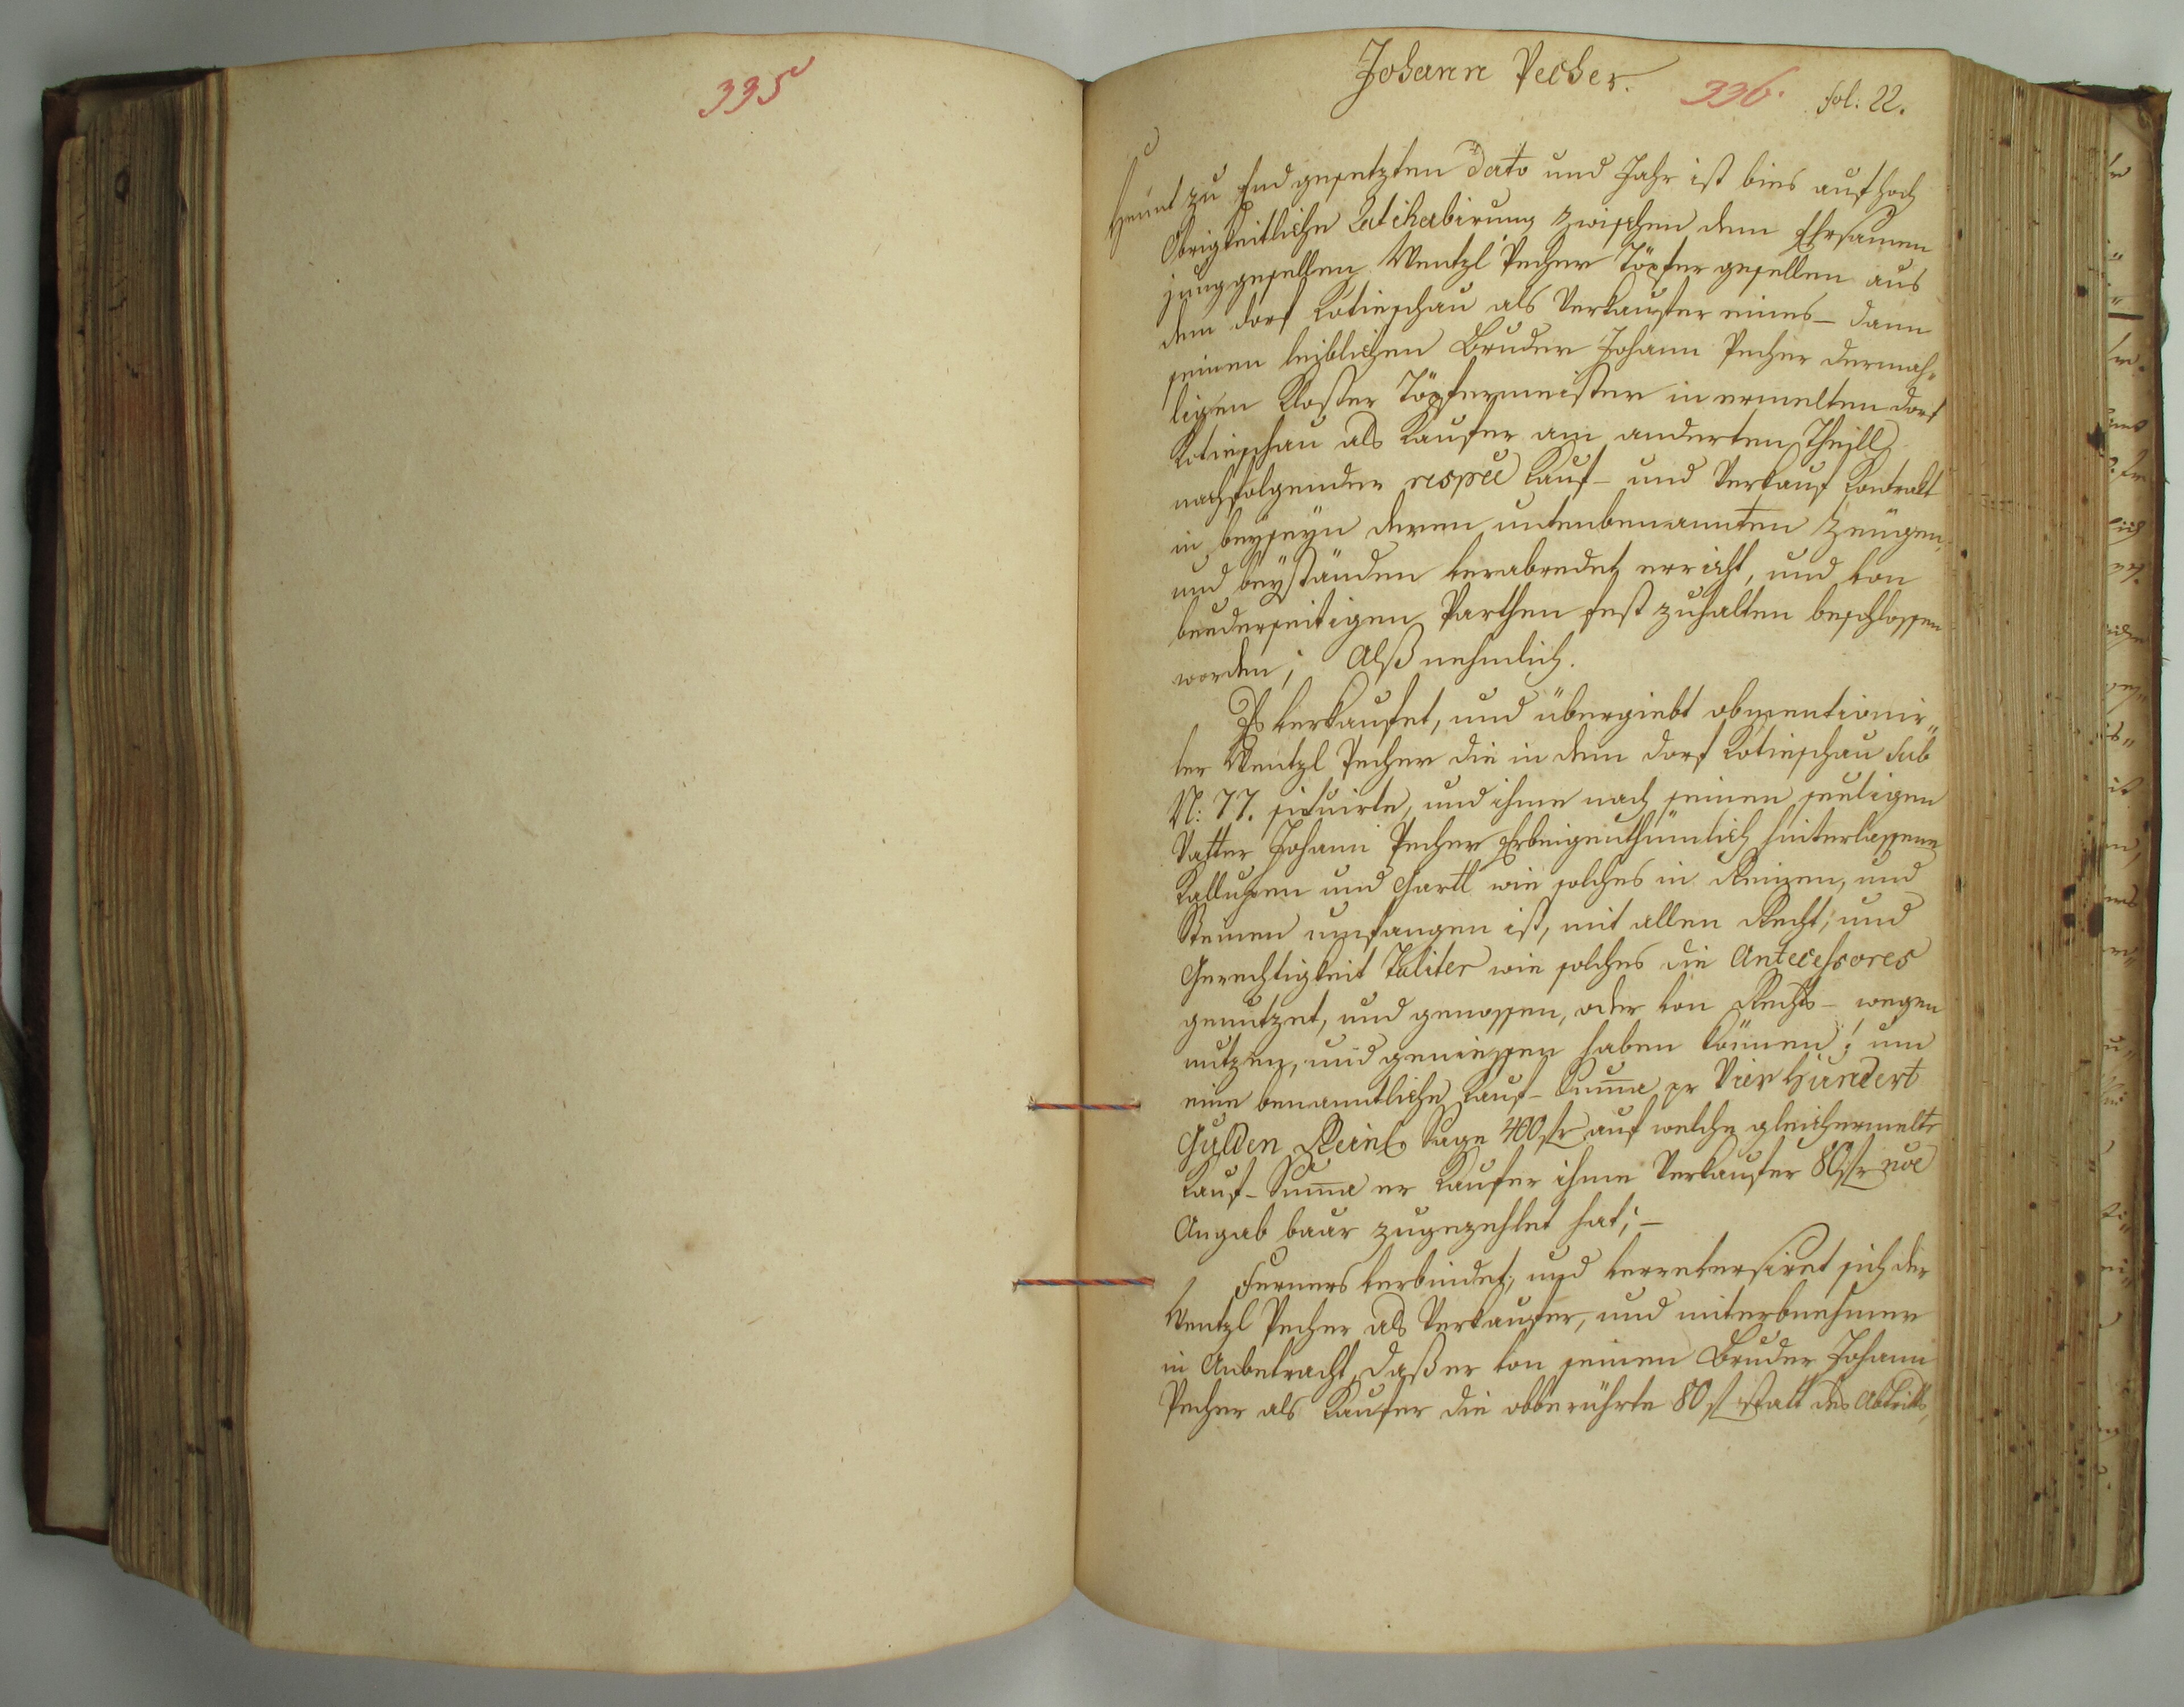 335
Johann Pecher.
336. fol: 22.
Heunt zu End gesetzten Dato und Jahr ist bies auf hoch
Obrigkeitliche Ratihabirung zwischen dem Ehrsamen
junggesellen Wentzl Pecher Töpfer gesellen aus
dem dorf Kotieschau als Verkaufer eines – dann
seinen leiblichen Bruder Johann Pecher dermah„
ligen Kloster Töpfermeister in ermelten dorf
Kotieschau als Kaufer am anderten Theill
nachfolgender respeè Kauf – und Verkauf Kontrakt
in beyseyn deren untenbenannten Zeugen,
und beyständen verabredet, erricht, und von
beederseitigen Parthen fest zuhalten beschlossen
worden; Alß nehmlich.
Es verkaufet, und übergiebt obmentionir„
ter Wentzl Pecher die in dem dorf Kotieschau sub
N: 77. situirte, und ihme nach seinen seeligen
Vatter Johann Pecher Erbeigenthümlich hinterlassene
Kalluppen und Gartl wie solches in Reinen, und
Steinen umfangen ist, mit allen Recht, und
Gerechtigkeit Taliter wie solches die Antecessores
genutzet, und genossen, oder von Rechts – wegen
nutzen, und geniessen haben können; um
eine benanntliche Kauf – Summa pr Vier Hundert
Gulden Reinl. Sage 400 fr auf welche gleichermelte
Kauf – Summa er Kaufer ihme Verkaufer 80 fr noe
Angab baar zugezehlet hat; –
Ferners verbindet, und verreversiret sich der
Wentzl Pecher als Verkaufer, und miterbnehmer
in Anbetracht, daß er von seinen Bruder Johann
Pecher als Kaufer die obberührte 80 f statt des Abtritts